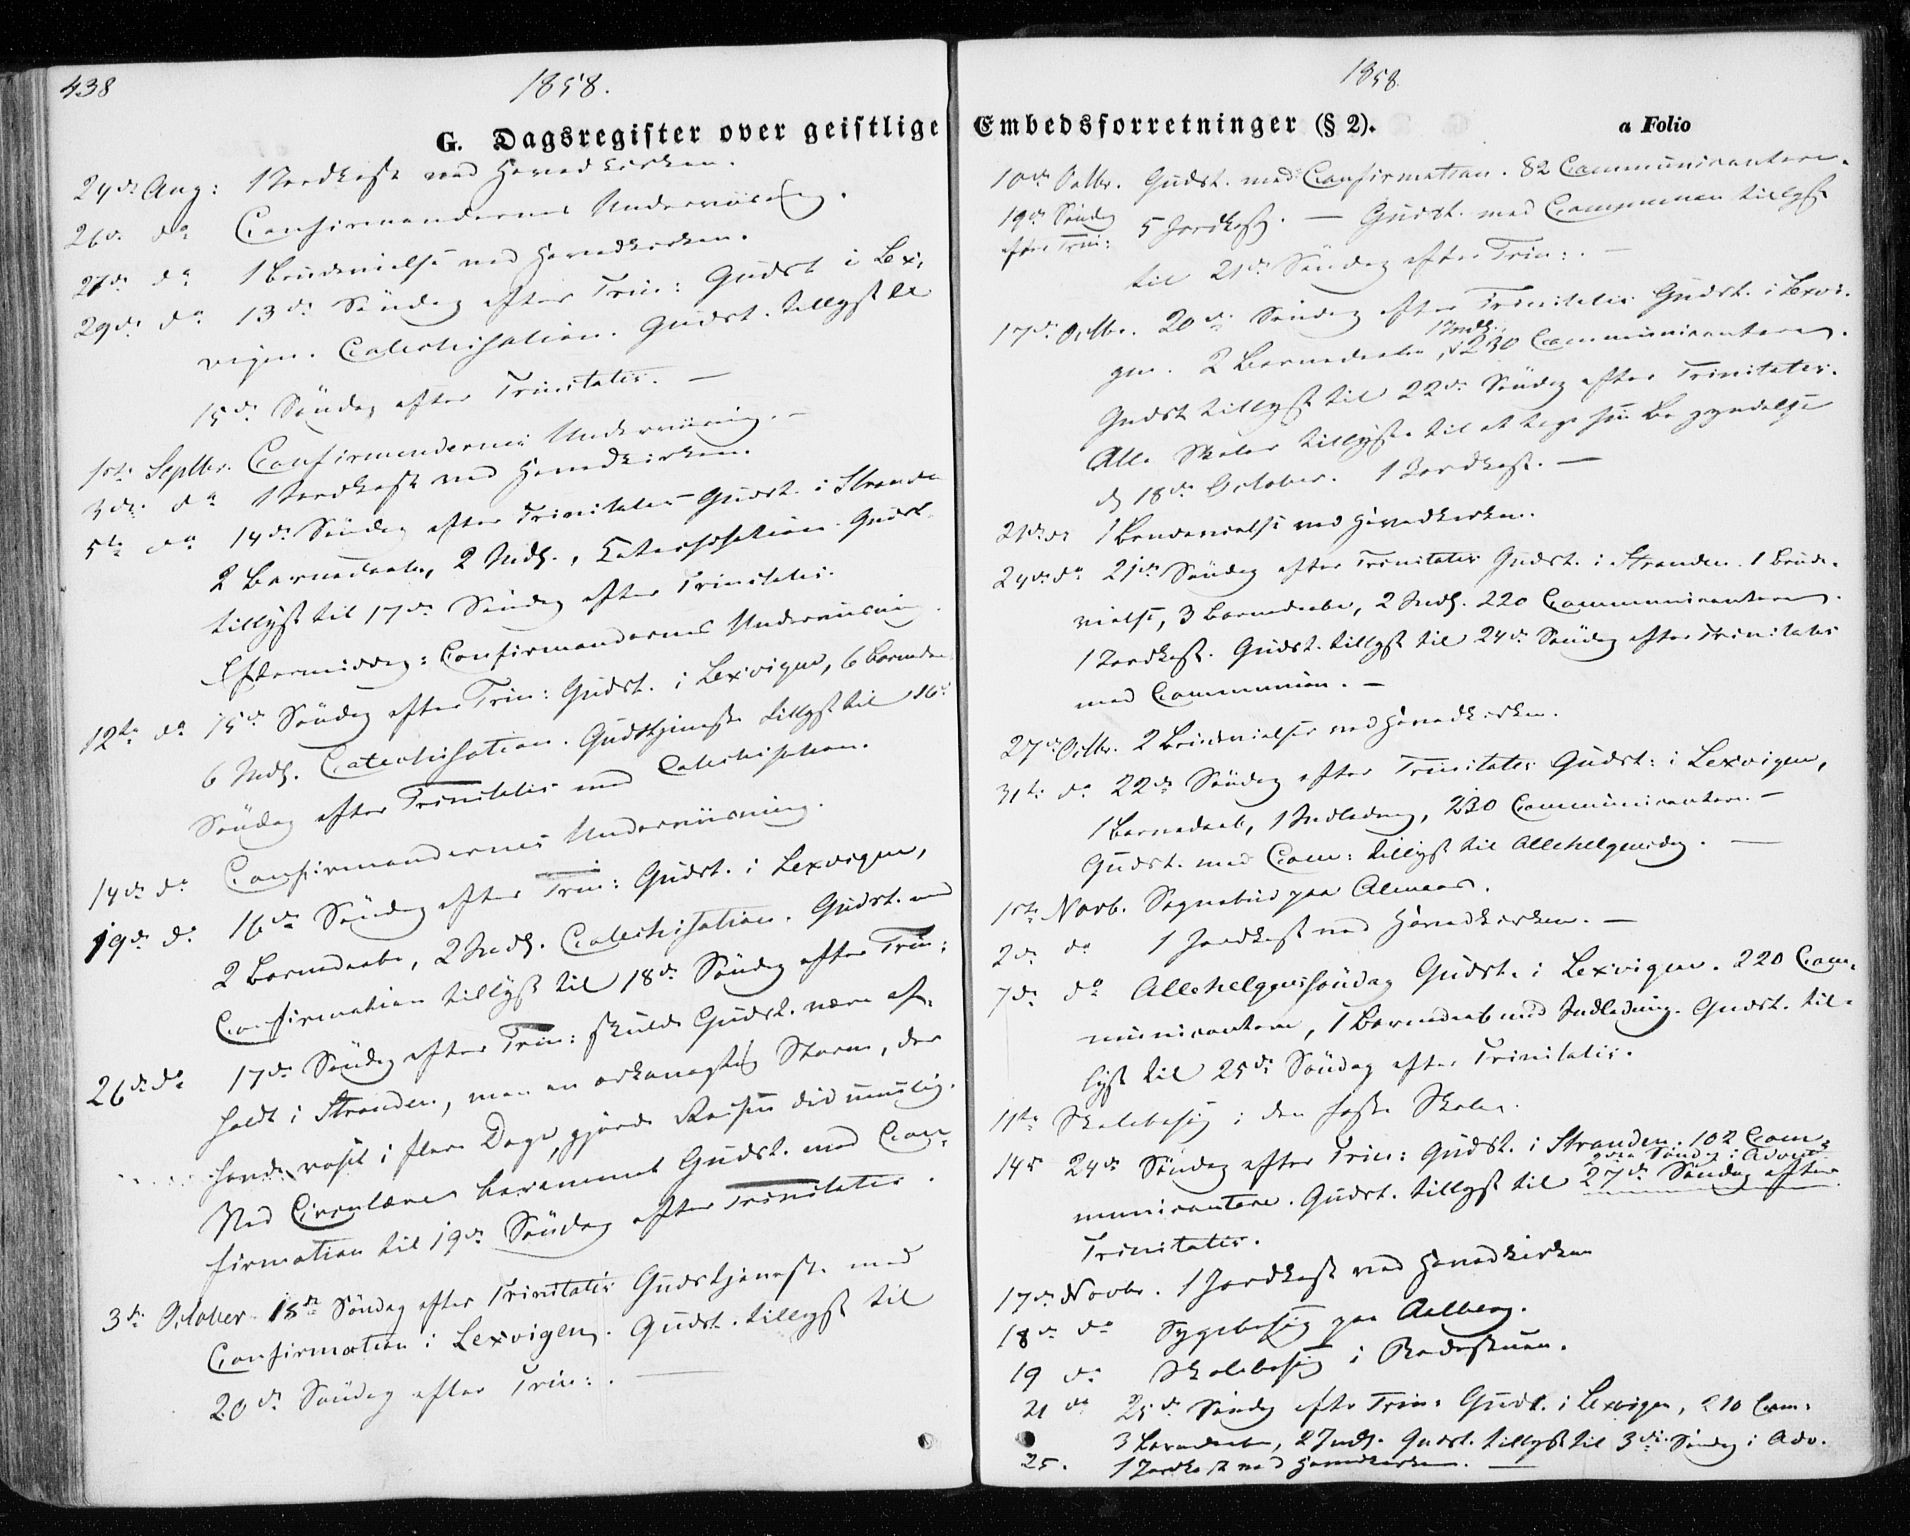 438
1858.
G. Dagsregister over geistlige
24de Aug: 1 Jordkast ved Hovedkirken.
26de do Confirmandernes Underviisning.
27de do 1 Brudevielse ved Hovedkirken.
29de do 13de Søndag efter Trin: Gudst. i Lex,
vigen. Catechisation. Gudst. tillyst til
15de Søndag efter Trinitatis. —
1ste Septbr. Confirmandernes Underviisning. —
3die do 1 Jordkast ved Hovedkirken.
5te do 14de Søndag efter Trinitatis Gudst. i Stranden
2 Barnedaabe, 2 Indl., Catechisation. Gudst.
tillyst til 17de Søndag efter Trinitatis.
Eftermiddag: Confirmandernes Underviisning.
12te do 15de Søndag efter Trin: Gudst. i Lexvigen, 6 Barneda
6 Indl. Catechisation. Gudstjeneste tillyst til 16de
Søndag efter Trinitatis med Catechisation.
14de do Confirmandernes Underviisning.
19de do 16de Søndag efter Trin: Gudst. i Lexvigen,
2 Barnedaabe, 2 Indl. Catechisation. Gudst. med
Confirmation tillyst til 18de Søndag efter Trin:
26de do 17de Søndag efter Trin: skulde Gudst. være af-
holdt i Stranden, men en orkanagtig Storm, der
havde raset i flere Dage, gjorde Reisen did umulig.
Ved Circulære berammet Gudst. med Con-
firmation til 19de Søndag efter Trinitatis.
3die October 18de Søndag efter Trinitatis Gudstjeneste med
Confirmation i Lexvigen. Gudst. tillyst til
20de Søndag efter Trin:. —
1858
Embedsforretninger (§ 2).
a Folio
10de Octbr. Gudst. med Confirmation. 82 Communicantere.
19de Søndag 5 Jordkast. — Gudst. med Communion tillyst
efter Trin: til 21de Søndag efter Trin:. —
17de Octbr. 20de Søndag efter Trinitatis Gudst. i Lexvi-
gen. 2 Barnedaabe, 1 Indl., 230 Communicantere.
Gudst tillyst til 22de Søndag efter Trinitatis.
Alle Skoler tillyste til at tage sin Begyndelse
d 18de October. 1 Jordkast. —
21de do 1 Brudevielse ved Hovedkirken.
24de do 21de Søndag efter Trinitatis Gudst. i Stranden. 1 Brude-
vielse, 3 Barnedaabe, 2 Indl. 220 Communicantere.
1 Jordkast. Gudst. tillyst til 24de Søndag efter Trinitatis
med Communion. —
27de Octbr. 2 Brudevielser ved Hovedkirken.
31te do 22de Søndag efter Trinitatis Gudst: i Lexvigen,
1 Barnedaab, 1 Indledning, 230 Communicantere. —
Gudst. med Com: tillyst til Allehelgensdag. —
1ste Novb. Sognebud paa
2de do 1 Jordkast ved Hovedkirken. —
7de do Allehelgenssøndag Gudst. i Lexvigen. 220 Com-
municantere, 1 Barnedaab med Indledning. Gudst. til-
lyst til 25de Søndag efter Trinitatis.
11te Skolebesøg i den faste Skole.
14de 24de Søndag efter Trin: Gudst. i Stranden. 102 Com-
Søndag i Advent
municantere. Gudst. tillyst til 27de Søndag efter
Trinitatis.
17de Novbr. 1 Jordkast ved Hovedkirken
18de do Sygebesøg paa Aalberg.
19 do Skolebesøg i
21 do 25de Søndag efter Trin: Gudst. i Lexvigen, 210 Com:
3 Barnedaabe, 2 Indl. Gudst. tillyst til 3die Søndag i Adv.
25. 1 Jordkast ved Hovedkirken. —